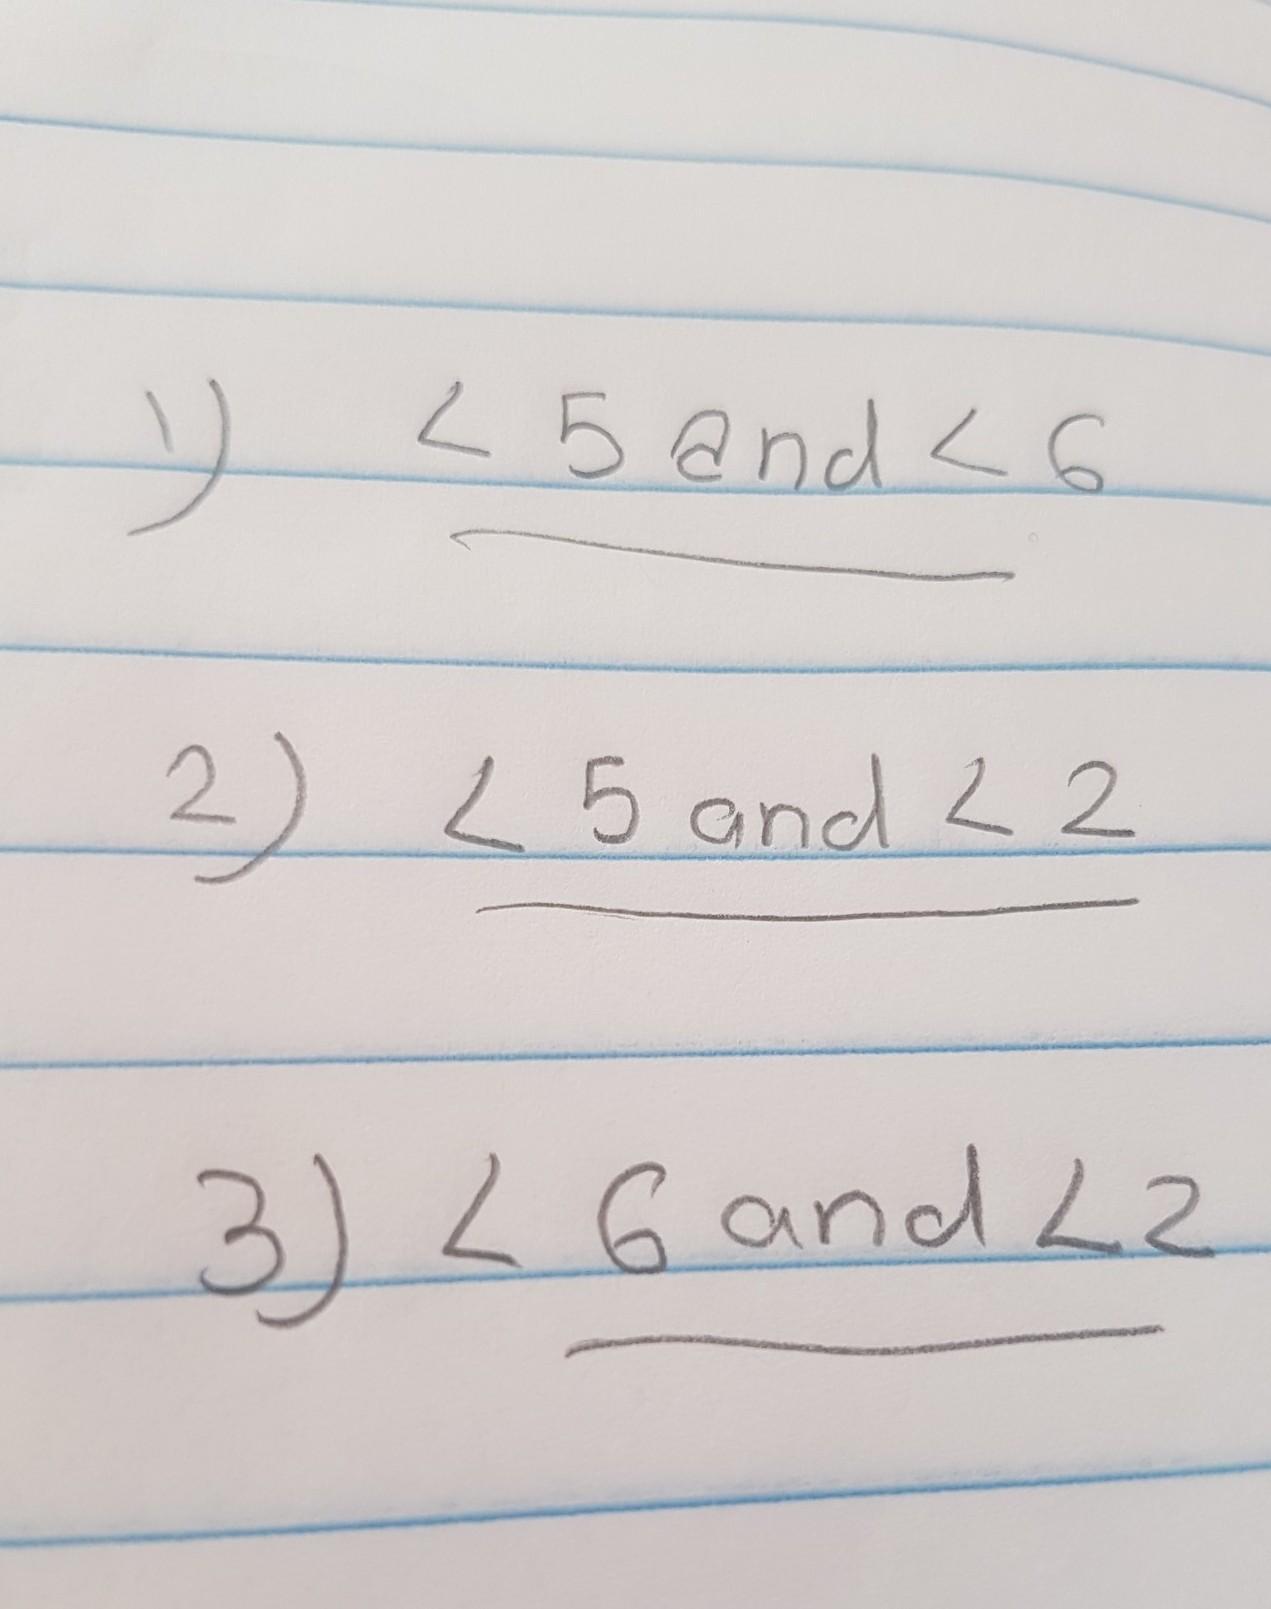 1) < 5 and < 6
2) < 5 and < 2
3) < 6 and < 2